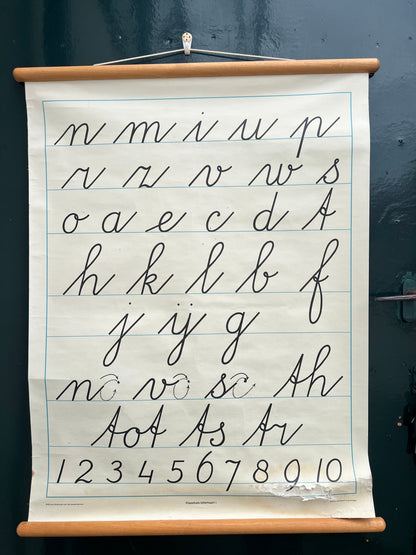 n m i u p
r z v w s
o a e c d t
h k l b f
j ij g
nc vo sc th
tot ts tr
1 2 3 4 5 6 7 8 9 10